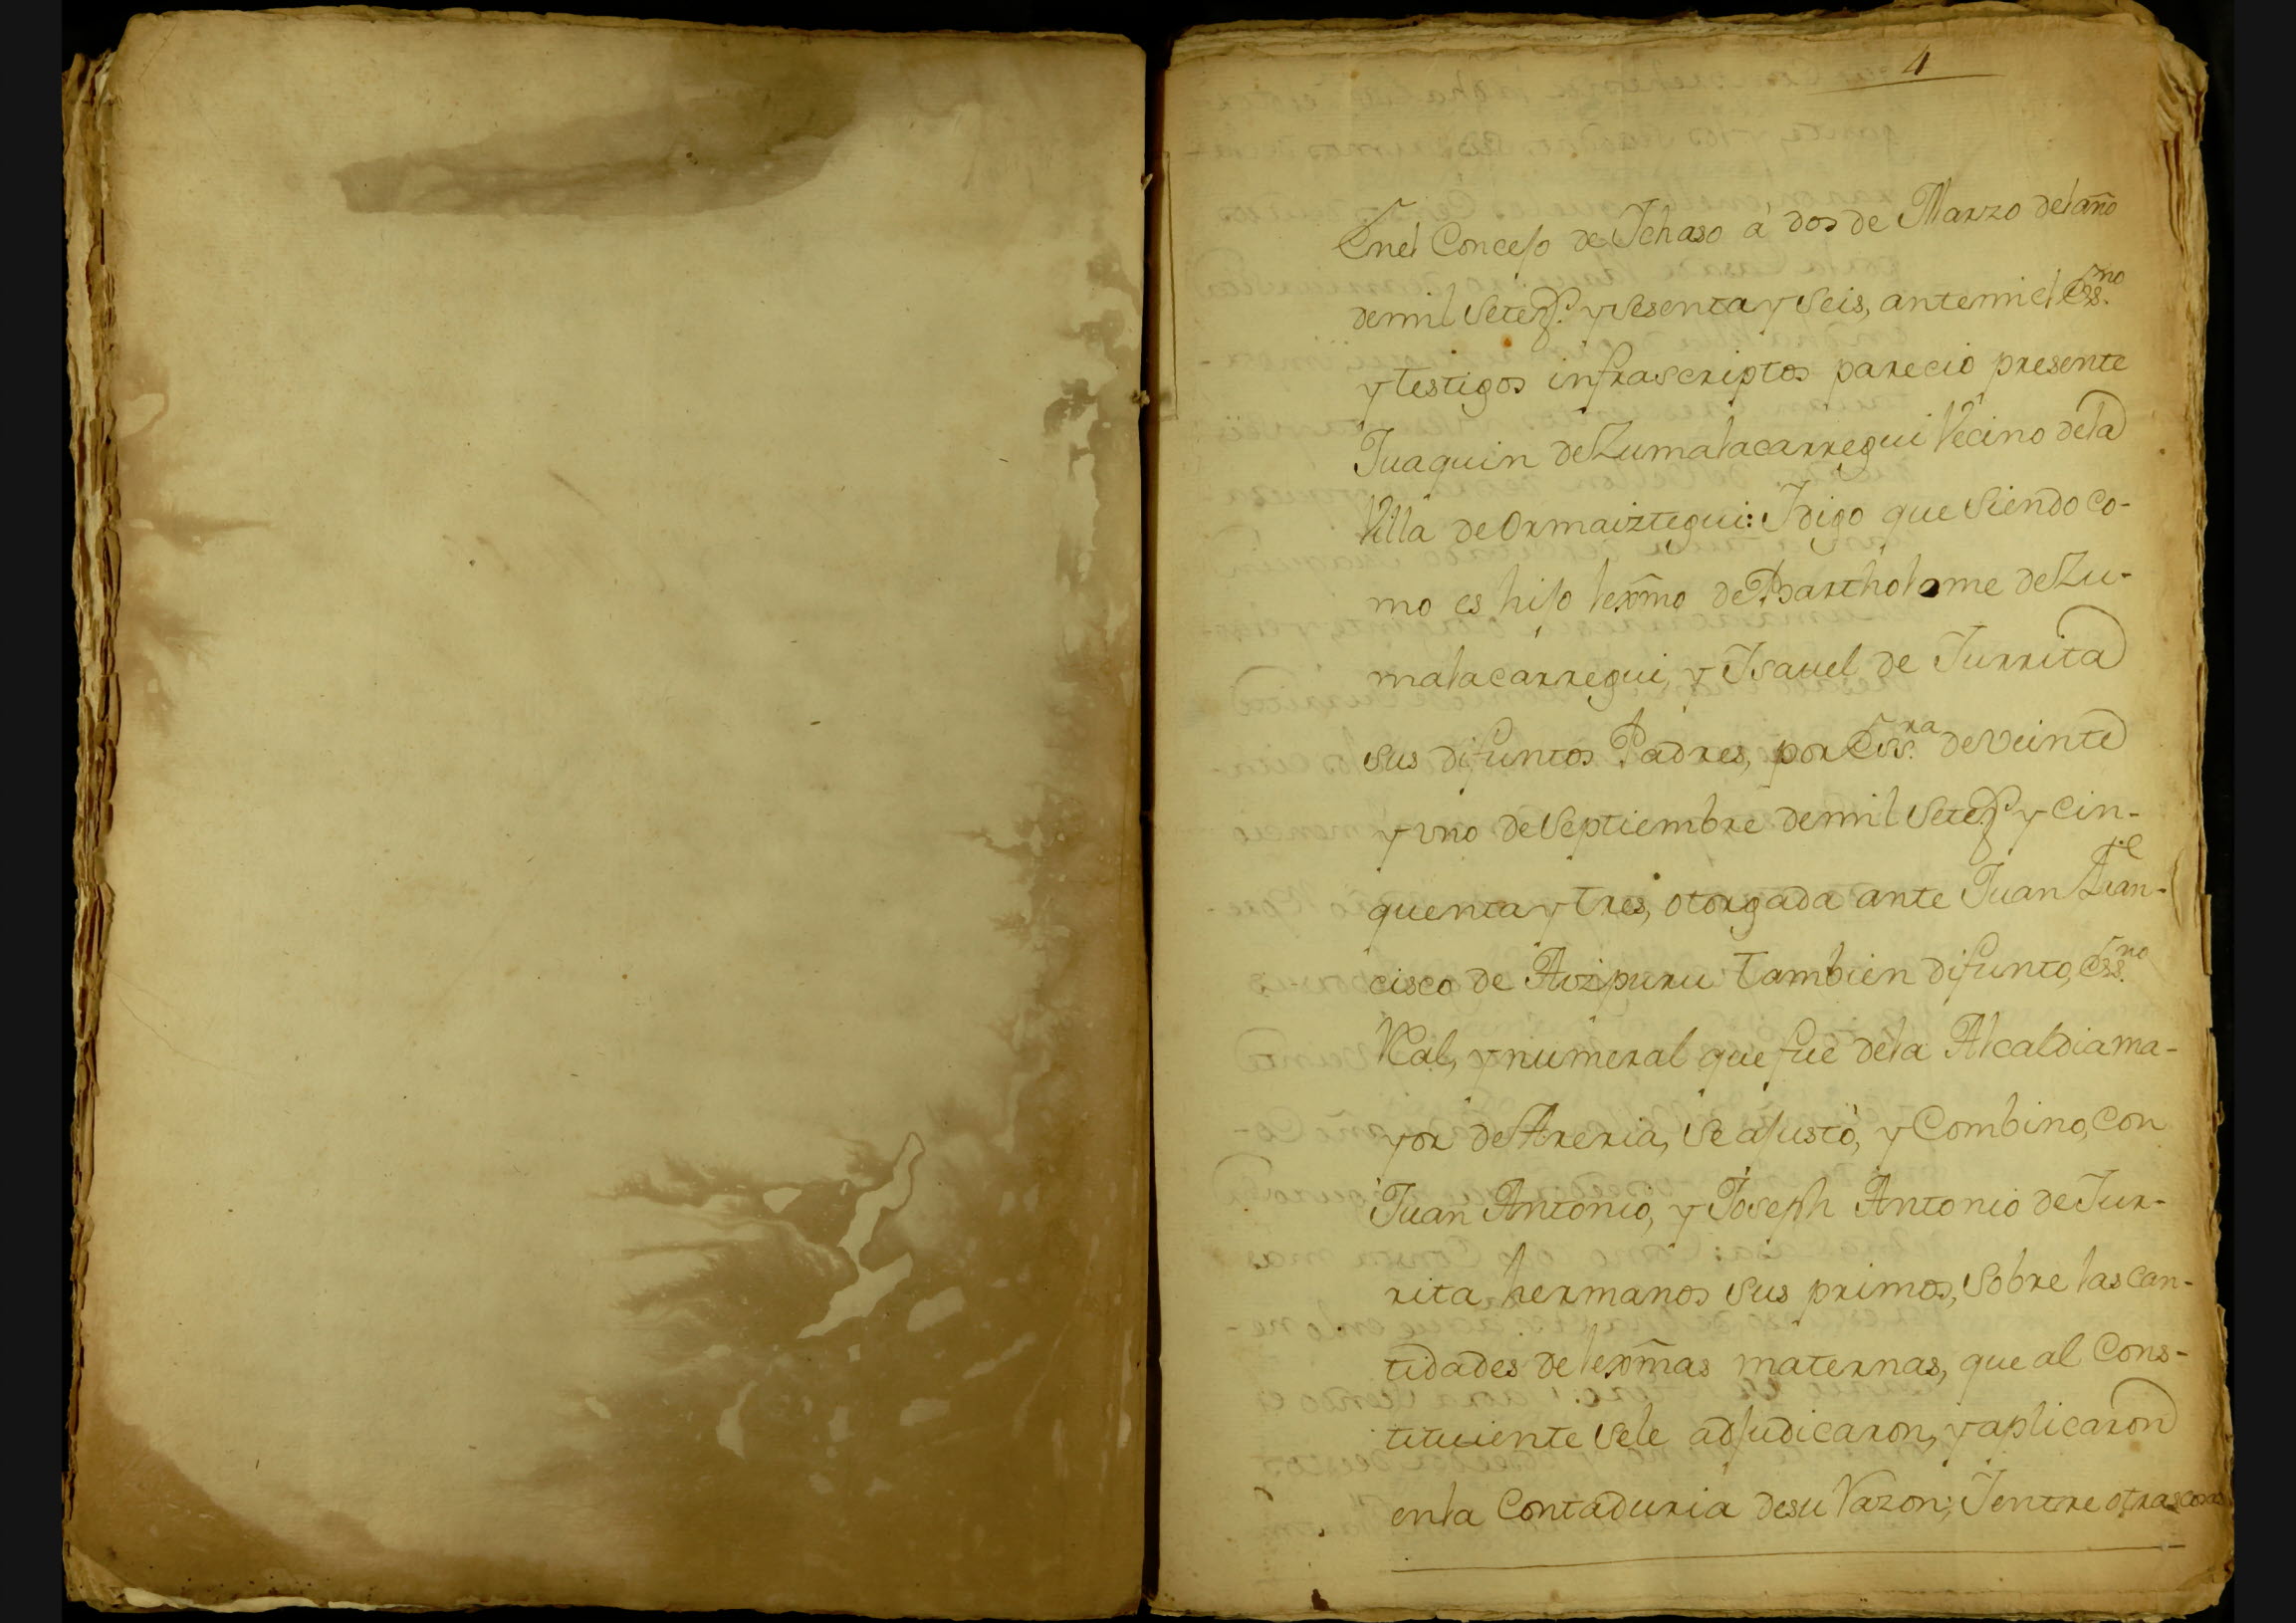 4
Enel Concejo de Ichaso à dos de Marzo del año
demil Setez.s y Sesenta y Seis, antemi el Ess.no
y testigos infrascriptos pareciò presente
Juaquin de Zumalacarregui Vecino dela
Villa de Ormaiztegui: I digo que Siendo co-
mo es hijo lexmo de Bartholome de Zu-
malacarregui, y Isauel de Iurrita
Sus difuntos Padres, por Ess.ra de veinte
y vno de Septiembre demil Setez.s y Cin-
quenta y tres, otorgada ante Juan Fran-
cisco de Aozipuru tambien difunto, Ess.no
Real, y numeral que fue dela Alcaldia ma-
yor de Areria, Se ajustò, y Combino, Con
Juan Antonio, y Joseph Antonio de Iur-
rita hermanos Sus primos, Sobre las can-
tidades de lexmas maternas, que al Cons-
tituiente Sele adjudicaron, y aplicaron
enla Contaduria desu Razon; I entre otras cosas